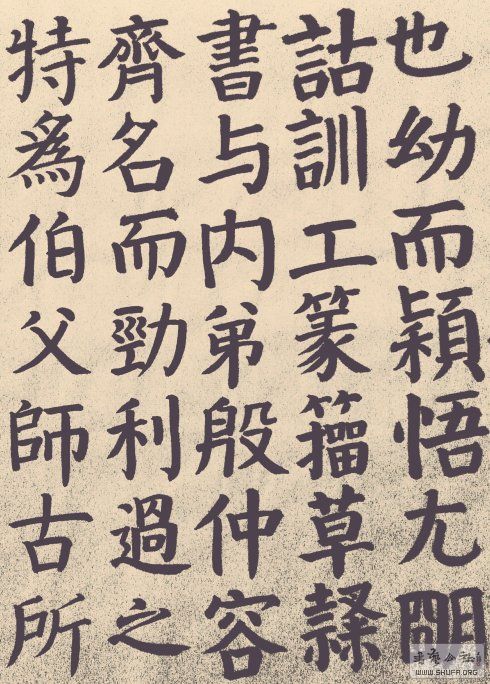 也幼而穎悟尤明
詁訓工篆籀草隸
書与内弟殷仲容
齊名而勁利過之
特爲伯父師古所
WWW.SHUFA.ORG